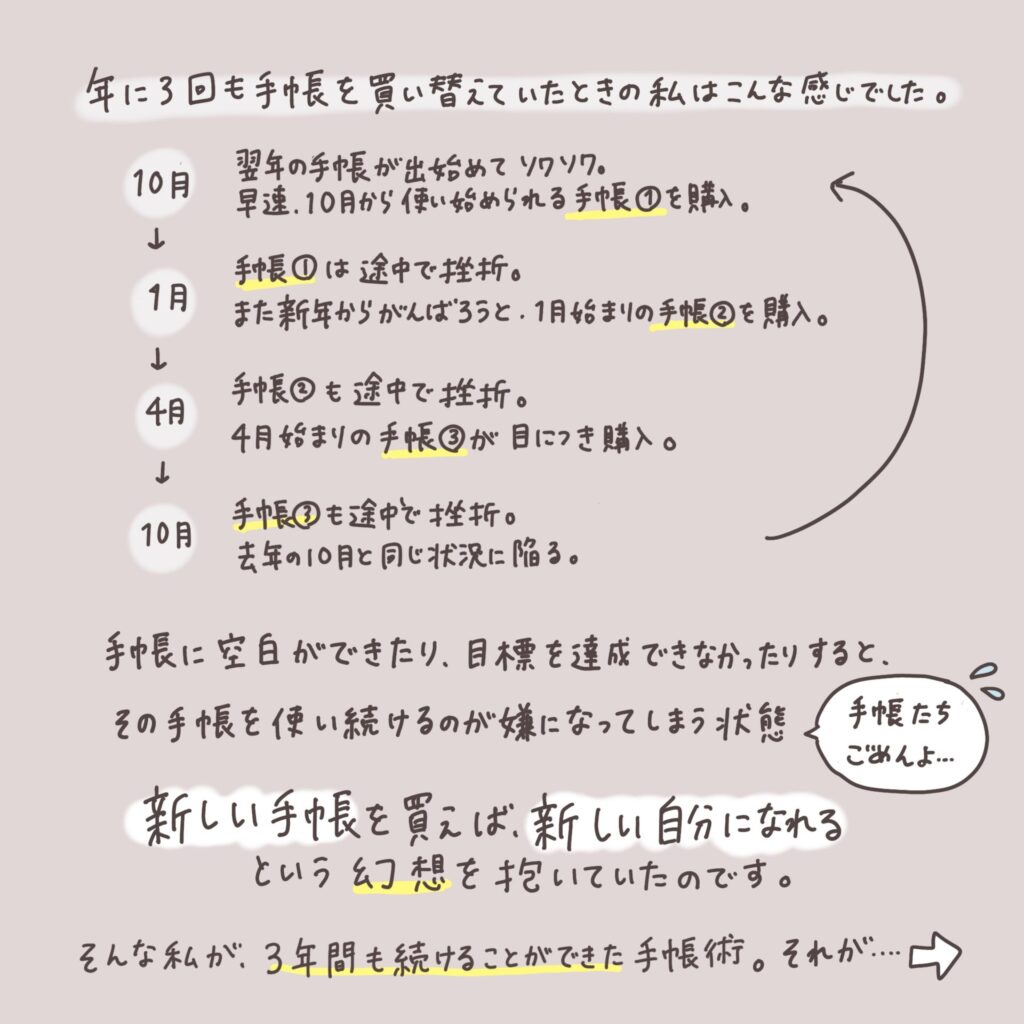 年に3回も手帳を買い替えていたときの私はこんな感じでした。
10月
翌年の手帳が出始めてソワソワ。
早速、10月から使い始められる手帳①を購入。
↓
1月
手帳①は途中で挫折。
また新年からがんばろうと、1月始まりの手帳②を購入。
↓
4月
手帳②も途中で挫折。
4月始まりの手帳③が目につき購入。
↓
10月
手帳③も途中で挫折。
去年の10月と同じ状況に陥る。
手帳に空白ができたり、目標を達成できなかったりすると、
その手帳を使い続けるのが嫌になってしまう状態
手帳たち
ごめんよ…
新しい手帳を買えば、新しい自分になれる
という幻想を抱いていたのです。
そんな私が、3年間も続けることができた手帳術。それが‥‥